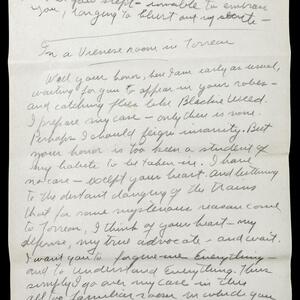 you slept - unable to embrace
you, longing to blurt out my secrete -
In a Viennese room in Torreon
Well your honor, here I am early as usual,
waiting for you to appear in your robes -
and catching flies like
I prepare my case - only there is none.
Perhaps I should feign insanity. But
your honor is too keen a student of
my habits to be taken in. I have
no case - except your heart. And listening
to the distant clanging of the trains
that for some mysterious reason come
to Torreon, I think of your heart - my
defense, my true advocate - and wait.
I want you to forgive me Everything -
and to understand Everything. Thus
simply I go over my case in this
all too familiar room in which you